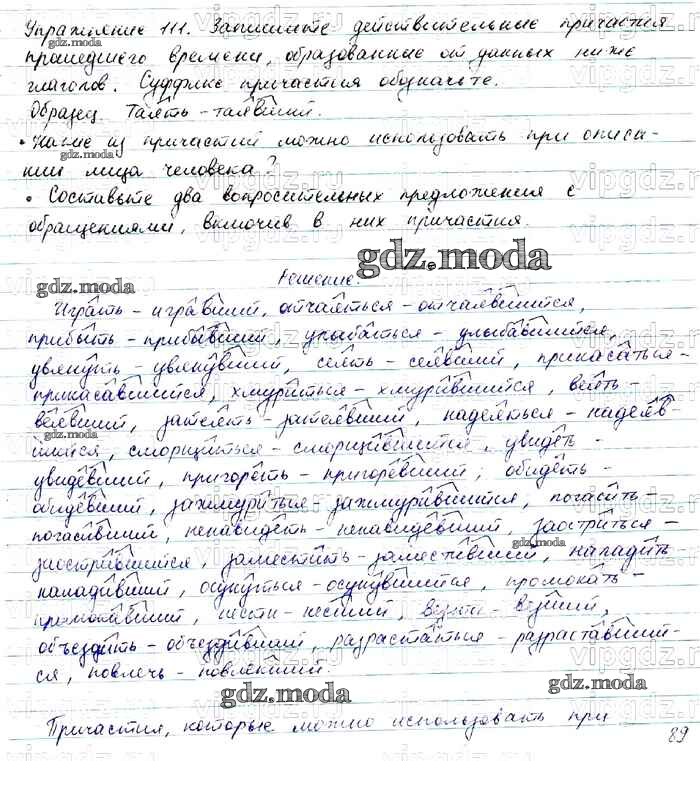 Упражнение 111. Запишите действительные причастия
прошедшего времени, образованные от данных ниже
gdz.moda
глаголов. Суффикс причастия обозначьте.
Образец. Таять - таявший.
• Какие из причастий можно использовать при описа-
gdz.moda
нии лица человека?
• Составьте два вопросительных предложения с
обращениями, включив в них причастия.
gdz.moda
Решение.
gdz.moda
Играть - игравший, отчаяться - отчаявшийся,
прибыть - прибывший, улыбаться - улыбавшийся,
gdz.moda
увянуть - увянувший, сеять - сеявший, прикасаться -
прикасавшийся, хмуриться - хмурившийся, веять -
веявший, затеять - затеявший, надеяться - надеяв-
gdz.moda
шийся, сморщиться - сморщившийся, увидеть -
увидевший, пригореть - пригоревший, обидеть -
обидевший, зажмуриться - зажмурившийся, погасить -
погасивший, ненавидеть - ненавидевший заостриться -
gdz.moda
заострившийся, заместить - заместивший, наладить
наладивший, окунуться - окунувшийся, промокать -
промокавший, нести - несший, везти - везший,
объездить - объездивший, разрастаться - разраставший-
ся, повлечь - повлекший.
gdz.moda gdz.moda
Причастия, которые можно использовать при
89